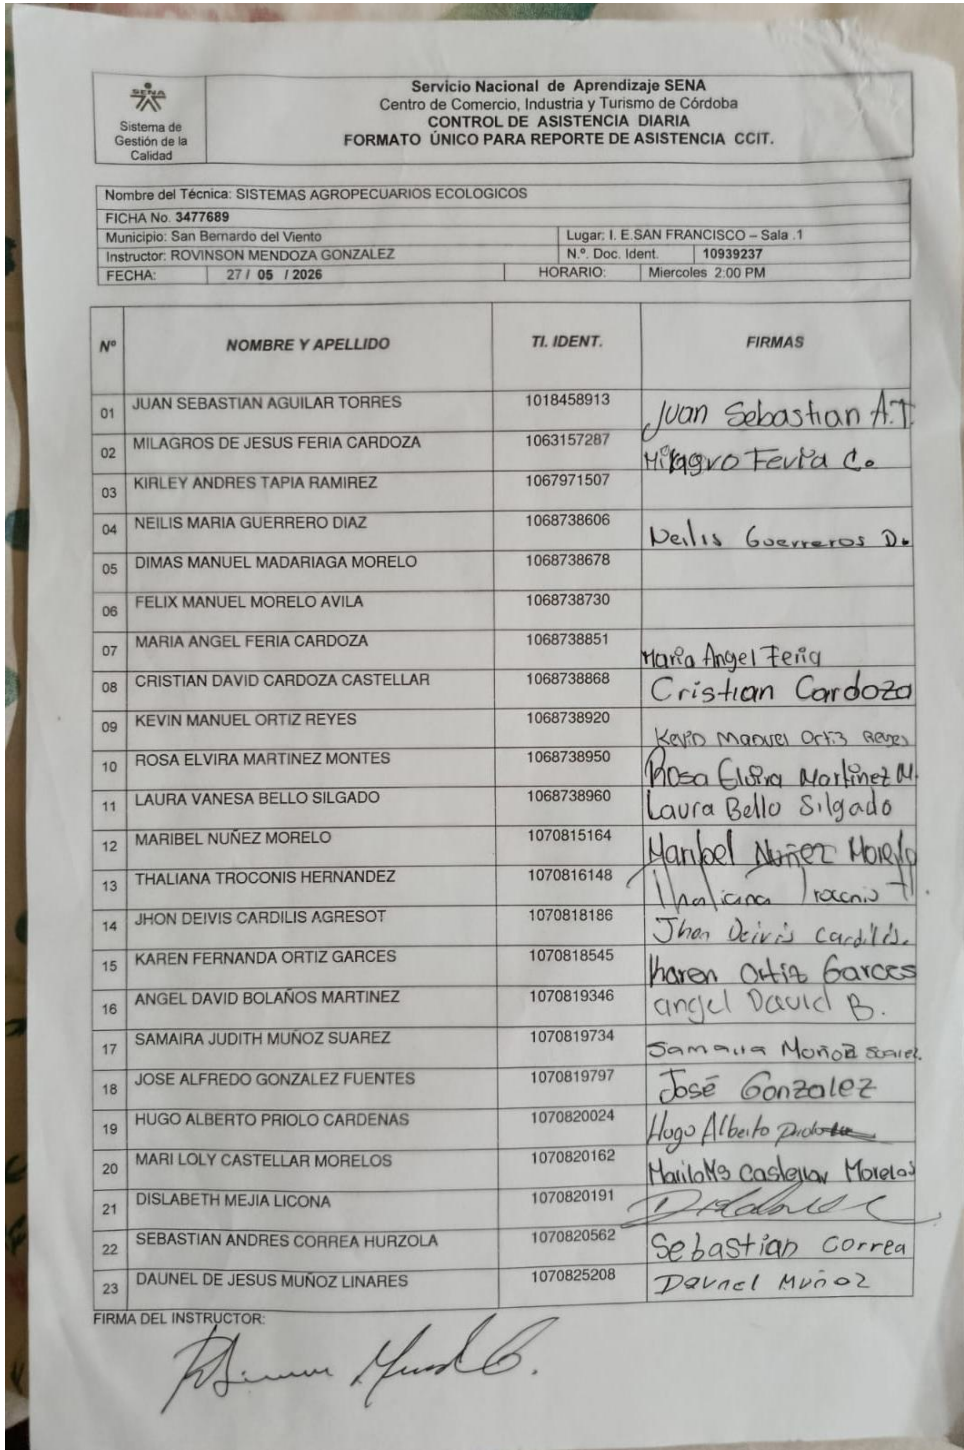 SENA
Sistema de
Gestión de la
Calidad
Servicio Nacional de Aprendizaje SENA
Centro de Comercio, Industria y Turismo de Córdoba
CONTROL DE ASISTENCIA DIARIA
FORMATO ÚNICO PARA REPORTE DE ASISTENCIA CCIT.
Nombre del Técnica: SISTEMAS AGROPECUARIOS ECOLOGICOS
FICHA No. 3477689
Municipio: San Bernardo del Viento Lugar: I. E.SAN FRANCISCO – Sala .1
Instructor: ROVINSON MENDOZA GONZALEZ N.º. Doc. Ident. 10939237
FECHA: 27 / 05 / 2026 HORARIO: Miercoles 2:00 PM
Nº NOMBRE Y APELLIDO TI. IDENT. FIRMAS
01 JUAN SEBASTIAN AGUILAR TORRES 1018458913 Juan Sebastian A.T
02 MILAGROS DE JESUS FERIA CARDOZA 1063157287 Milagro Feria C.
03 KIRLEY ANDRES TAPIA RAMIREZ 1067971507
04 NEILIS MARIA GUERRERO DIAZ 1068738606 Neilis Guerreros D.
05 DIMAS MANUEL MADARIAGA MORELO 1068738678
06 FELIX MANUEL MORELO AVILA 1068738730
07 MARIA ANGEL FERIA CARDOZA 1068738851 Maria Angel Feria
08 CRISTIAN DAVID CARDOZA CASTELLAR 1068738868 Cristian Cardoza
09 KEVIN MANUEL ORTIZ REYES 1068738920 Kevin Manuel Ortiz Reyes
10 ROSA ELVIRA MARTINEZ MONTES 1068738950 Rosa Elvira Martinez M.
11 LAURA VANESA BELLO SILGADO 1068738960 Laura Bello Silgado
12 MARIBEL NUÑEZ MORELO 1070815164 Maribel Nuñez Morelo
13 THALIANA TROCONIS HERNANDEZ 1070816148 Thaliana Troconis H.
14 JHON DEIVIS CARDILIS AGRESOT 1070818186 Jhon Deivis Cardilis.
15 KAREN FERNANDA ORTIZ GARCES 1070818545 Karen Ortiz Garces
16 ANGEL DAVID BOLAÑOS MARTINEZ 1070819346 angel David B.
17 SAMAIRA JUDITH MUÑOZ SUAREZ 1070819734 Samaira Moñoz Suarez.
18 JOSE ALFREDO GONZALEZ FUENTES 1070819797 José Gonzalez
19 HUGO ALBERTO PRIOLO CARDENAS 1070820024 Hugo Alberto
20 MARI LOLY CASTELLAR MORELOS 1070820162 Castellar Morelos
21 DISLABETH MEJIA LICONA 1070820191
22 SEBASTIAN ANDRES CORREA HURZOLA 1070820562 Sebastian Correa
23 DAUNEL DE JESUS MUÑOZ LINARES 1070825208 Daunel Muñoz
FIRMA DEL INSTRUCTOR: